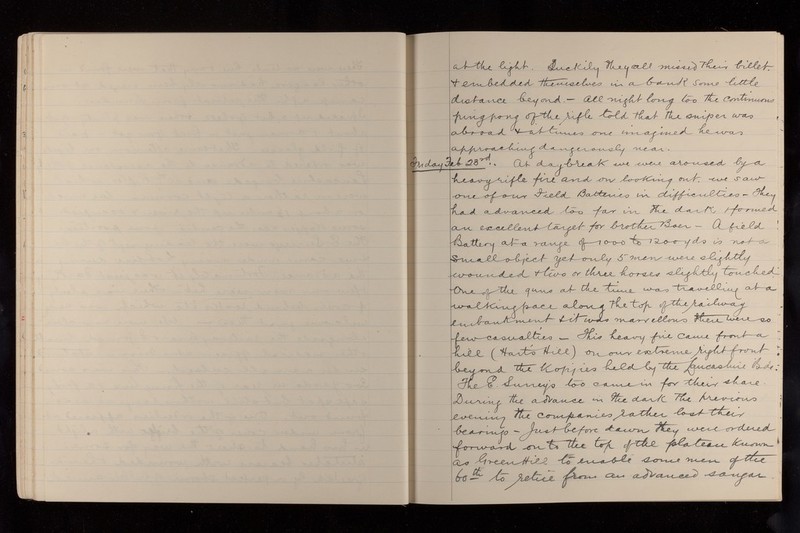 at the light. Luckily they all missed their billet.
& embedded themselves in a bank some little
distance beyond — All night long too the continuous
ping pong of the rifle told that the sniper was
abroad & at times one imagined he was
approaching dangerously near.
Friday Feb 23rd. At daybreak we were aroused by a
heavy rifle fire and on looking out we saw
one of our Field Batteries in difficulties — They
had advanced too far in the dark & formed
an excellent target for brother Boer — A field
Battery at a range of 1000 to 1200 yds is not a
small object yet only 5 men were slightly
wounded & two or three horses slightly touched
One of the guns at the time was travelling at a
walking pace along the top of the railway
embankment & it was marvellous there were so
few casualties — This heavy fire came from a
hill (Hart's Hill) on our extreme right front
beyond the Kopjies held by the Lancashire Bde.
The E Surreys too came in for their share
During the advance in the dark the previous
evening the companies rather lost their
bearings — Just before dawn they were ordered
forward on to the top of the plateau known
as Green Hill to enable some men of the
60th to retire from an advanced sangar